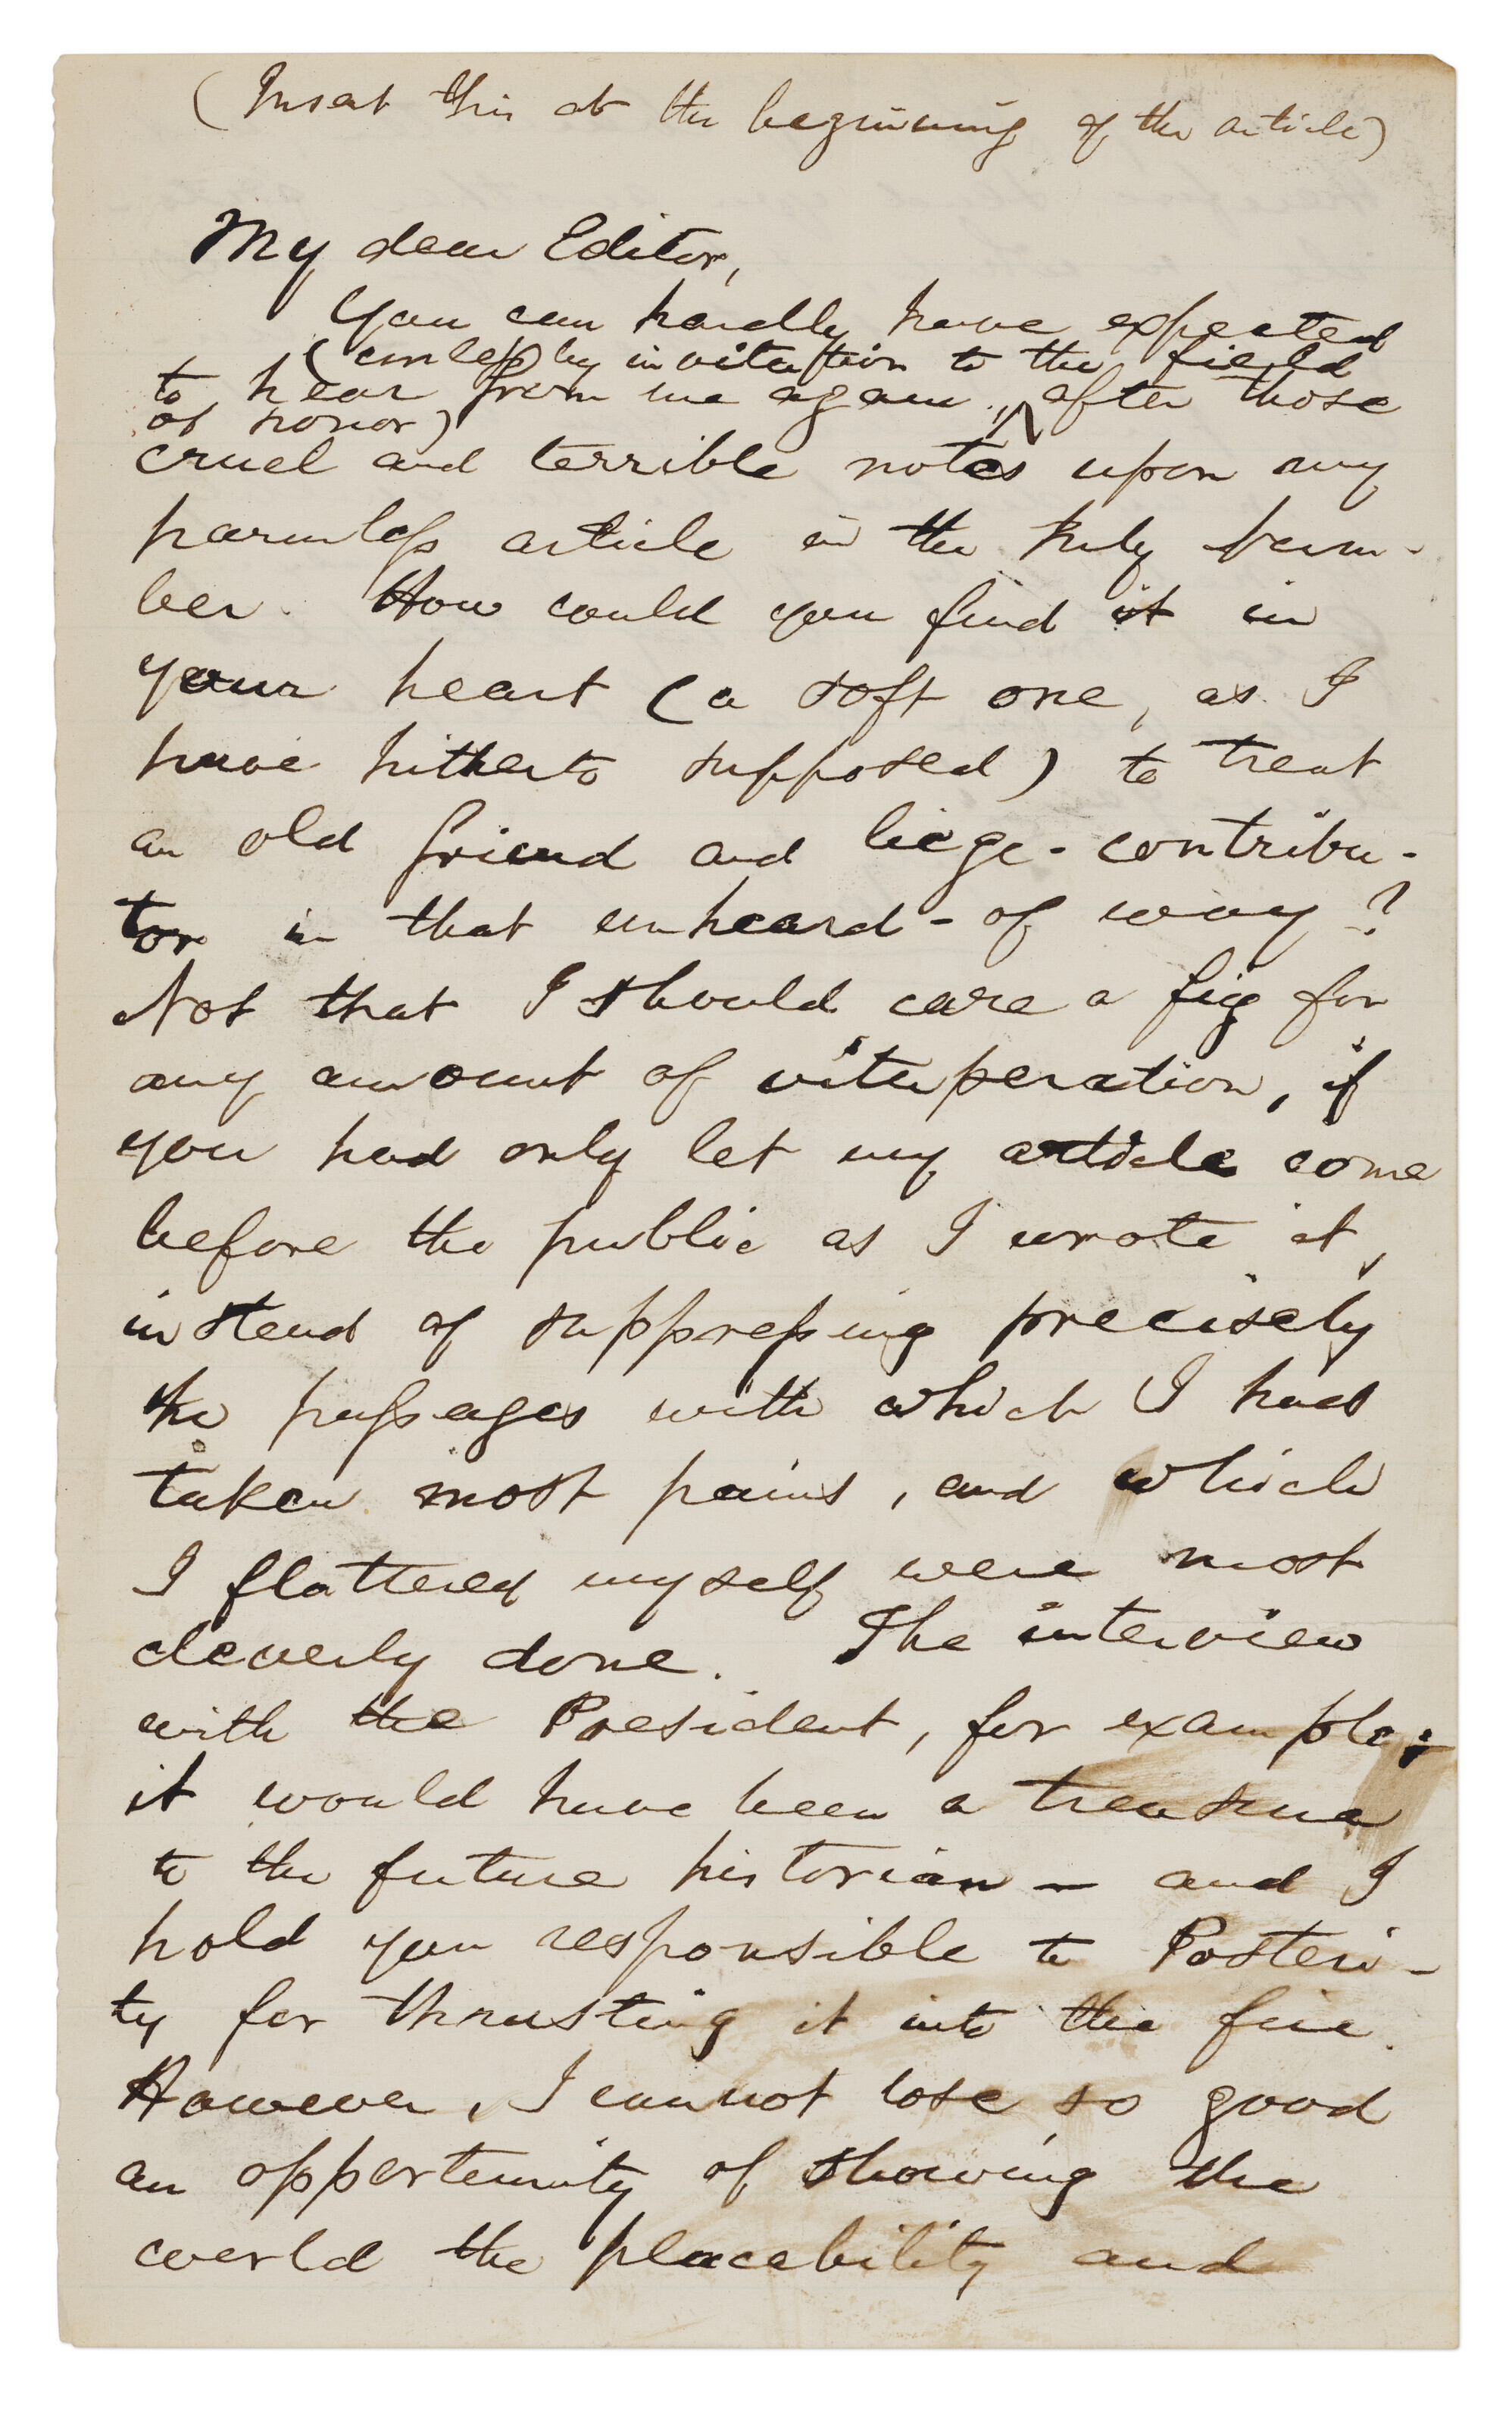 (Insert this at the beginning of the article)
My dear Editor,
You can hardly have expected
(unless by invitation to the field
to hear from me again, ^ after those
of honor)
cruel and terrible notes upon my
harmless article in the July Num-
ber. How could you find it in
your heart (a soft one, as I
have hitherto supposed) to treat
an old friend and liege-contribu-
tor in that unheard-of way?
Not that I should care a fig for
any amount of vituperation, if
you had only let my article come
before the public as I wrote it,
instead of suppressing precisely
the passages with which I had
taken most pains, and which
I flattered myself were most
cleverly done. The interview
with the President, for example;
it would have been a treasure
to the future historian — and I
hold you responsible to Posteri-
ty for thrusting it into the fire.
However, I cannot lose so good
an opportunity of showing the
world the placability and